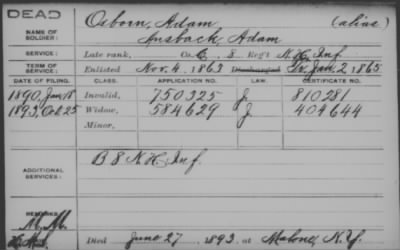 DEAD
NAME OF SOLDIER: Osborn, Adam, (alias)
Ansbach, Adam
SERVICE: Late rank, Co. C, 8 Reg't N.H. Inf
TERM OF SERVICE: Enlisted Nov. 4, 1863 Discharged Tr. Jan. 2, 1865
DATE OF FILING. CLASS. APPLICATION NO. LAW. CERTIFICATE NO.
1890, Jan 18 Invalid, 750325 J. 810281
1893, Oct 25 Widow, 584629 J. 404644
Minor,
ADDITIONAL SERVICES: B 8 N.H. Inf.
REMARKS:
Died June 27, 1893, at Malone, N.Y.